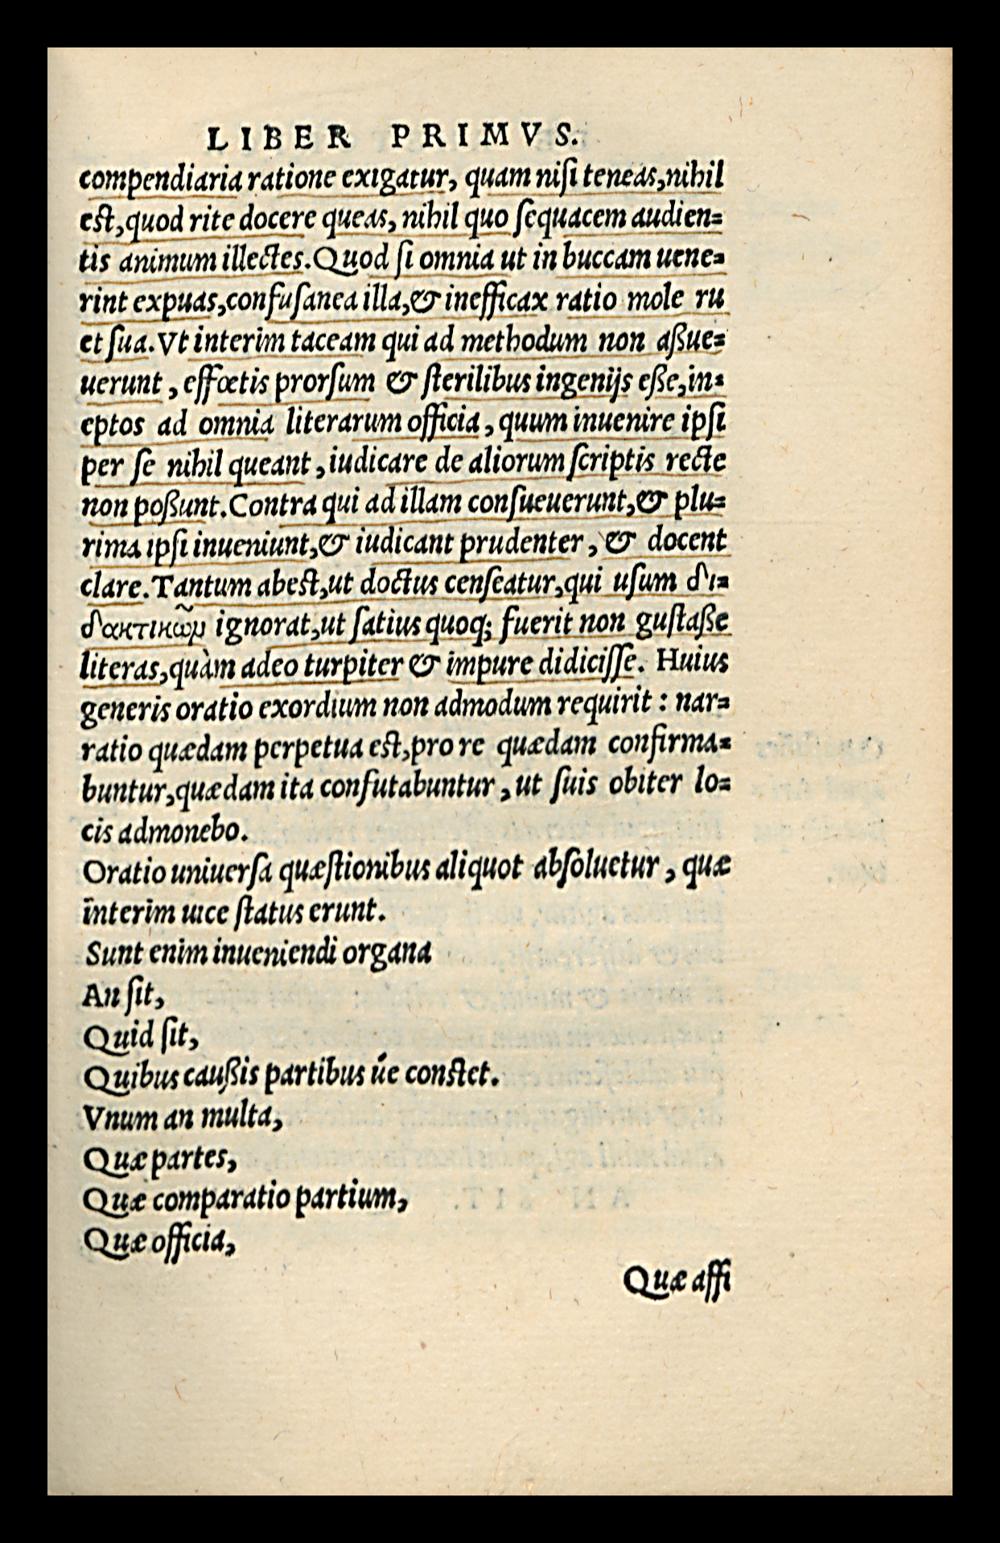 LIBER PRIMVS.
compendiaria ratione exigatur, quam nisi teneas, nihil
est, quod rite docere queas, nihil quo sequacem audien=
tis animum illectes. Quod si omnia ut in buccam uene=
rint expuas, confusanea illa, & inefficax ratio mole ru
et sua. Vt interim taceam qui ad methodum non aßue=
uerunt, effœtis prorsum & sterilibus ingenijs eße, in=
eptos ad omnia literarum officia, quum inuenire ipsi
per se nihil queant, iudicare de aliorum scriptis recte
non poßunt. Contra qui ad illam consueuerunt, & plu=
rima ipsi inueniunt, & iudicant prudenter, & docent
clare. Tantum abest, ut doctus censeatur, qui usum δι=
δακτικῶμ ignorat, ut satius quoq; fuerit non gustaße
literas, quàm adeo turpiter & impure didicisse. Huius
generis oratio exordium non admodum requirit : nar=
ratio quædam perpetua est, pro re quædam confirma=
buntur, quædam ita confutabuntur, ut suis obiter lo=
cis admonebo.
Oratio uniuersa quæstionibus aliquot absoluetur, quæ
interim uice status erunt.
Sunt enim inueniendi organa
An sit,
Quid sit,
Quibus caußis partibus úe constet.
Vnum an multa,
Quæ partes,
Quæ comparatio partium,
Quæ officia,
Quæ affi